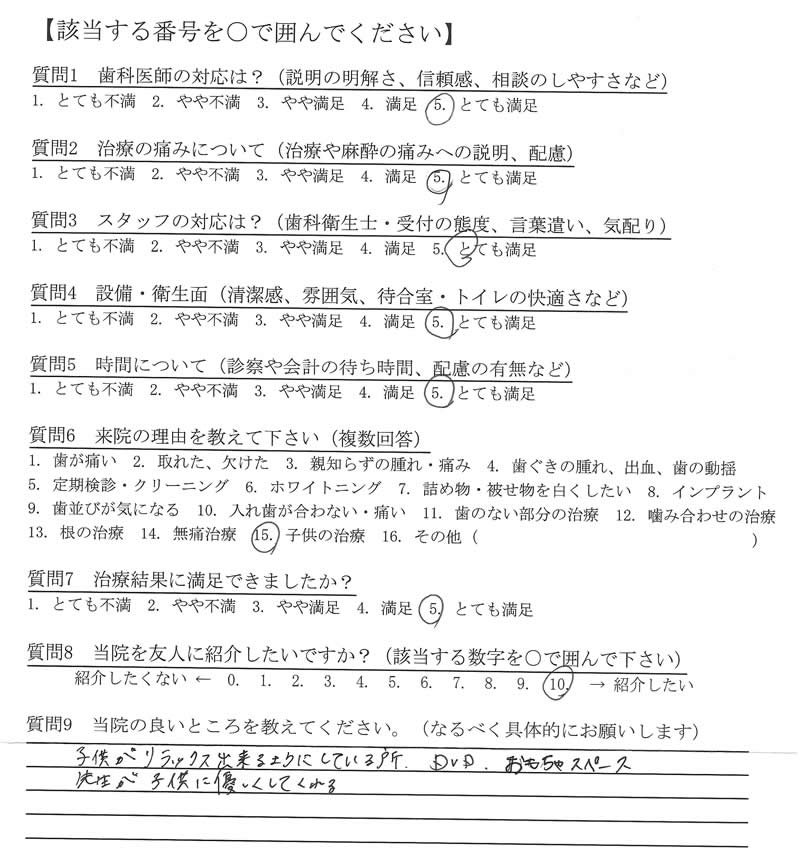 【該当する番号を〇で囲んでください】
質問1 歯科医師の対応は？（説明の明解さ、信頼感、相談のしやすさなど）
1. とても不満 2. やや不満 3. やや満足 4. 満足 5. とても満足
質問2 治療の痛みについて（治療や麻酔の痛みへの説明、配慮）
1. とても不満 2. やや不満 3. やや満足 4. 満足 5. とても満足
質問3 スタッフの対応は？（歯科衛生士・受付の態度、言葉遣い、気配り）
1. とても不満 2. やや不満 3. やや満足 4. 満足 5. とても満足
質問4 設備・衛生面（清潔感、雰囲気、待合室・トイレの快適さなど）
1. とても不満 2. やや不満 3. やや満足 4. 満足 5. とても満足
質問5 時間について（診察や会計の待ち時間、配慮の有無など）
1. とても不満 2. やや不満 3. やや満足 4. 満足 5. とても満足
質問6 来院の理由を教えて下さい（複数回答）
1. 歯が痛い 2. 取れた、欠けた 3. 親知らずの腫れ・痛み 4. 歯ぐきの腫れ、出血、歯の動揺
5. 定期検診・クリーニング 6. ホワイトニング 7. 詰め物・被せ物を白くしたい 8. インプラント
9. 歯並びが気になる 10. 入れ歯が合わない・痛い 11. 歯のない部分の治療 12. 噛み合わせの治療
13. 根の治療 14. 無痛治療 15. 子供の治療 16. その他（ ）
質問7 治療結果に満足できましたか？
1. とても不満 2. やや不満 3. やや満足 4. 満足 5. とても満足
質問8 当院を友人に紹介したいですか？（該当する数字を〇で囲んで下さい）
紹介したくない ← 0. 1. 2. 3. 4. 5. 6. 7. 8. 9. 10. → 紹介したい
質問9 当院の良いところを教えてください。（なるべく具体的にお願いします）
子供がリラックス出来るようにしている所. DVD. おもちゃスペース
先生が子供に優しくしてくれる